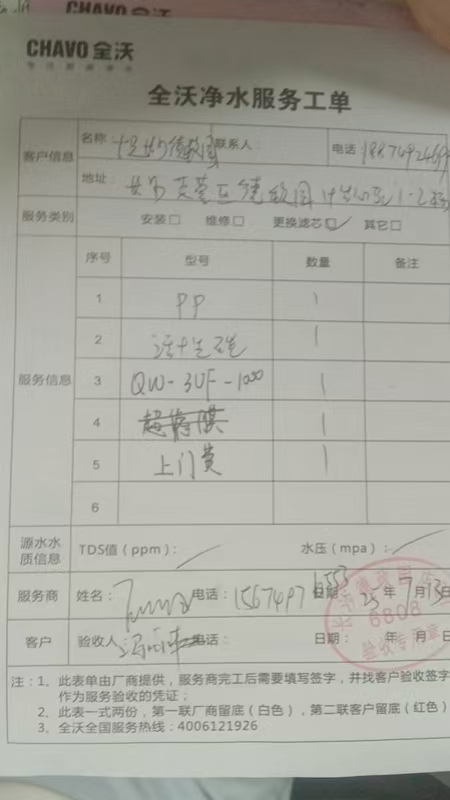 CHAVO全沃
CHAVO全沃
全沃净水服务工单
客户信息 名称 联系人 电话
地址:
服务类别 安装□ 维修□ 更换滤芯□✓ 其它□
服务信息 序号 型号 数量 备注
1 PP 1
2 活性炭 1
3 QW-3UF-1000 1
4 超滤膜 1
5 上门费 1
6
源水水质信息 TDS值（ppm）: 水压（mpa）:
服务商 姓名: 电话: 日期: 25年7月13日
6808
验收专用章
客户 验收人 电话: 日期: 年 月 日
注：1、此表单由厂商提供，服务商完工后需要填写签字，并找客户验收签字
作为服务验收的凭证；
2、此表一式两份，第一联厂商留底（白色），第二联客户留底（红色）
3、全沃全国服务热线：4006121926